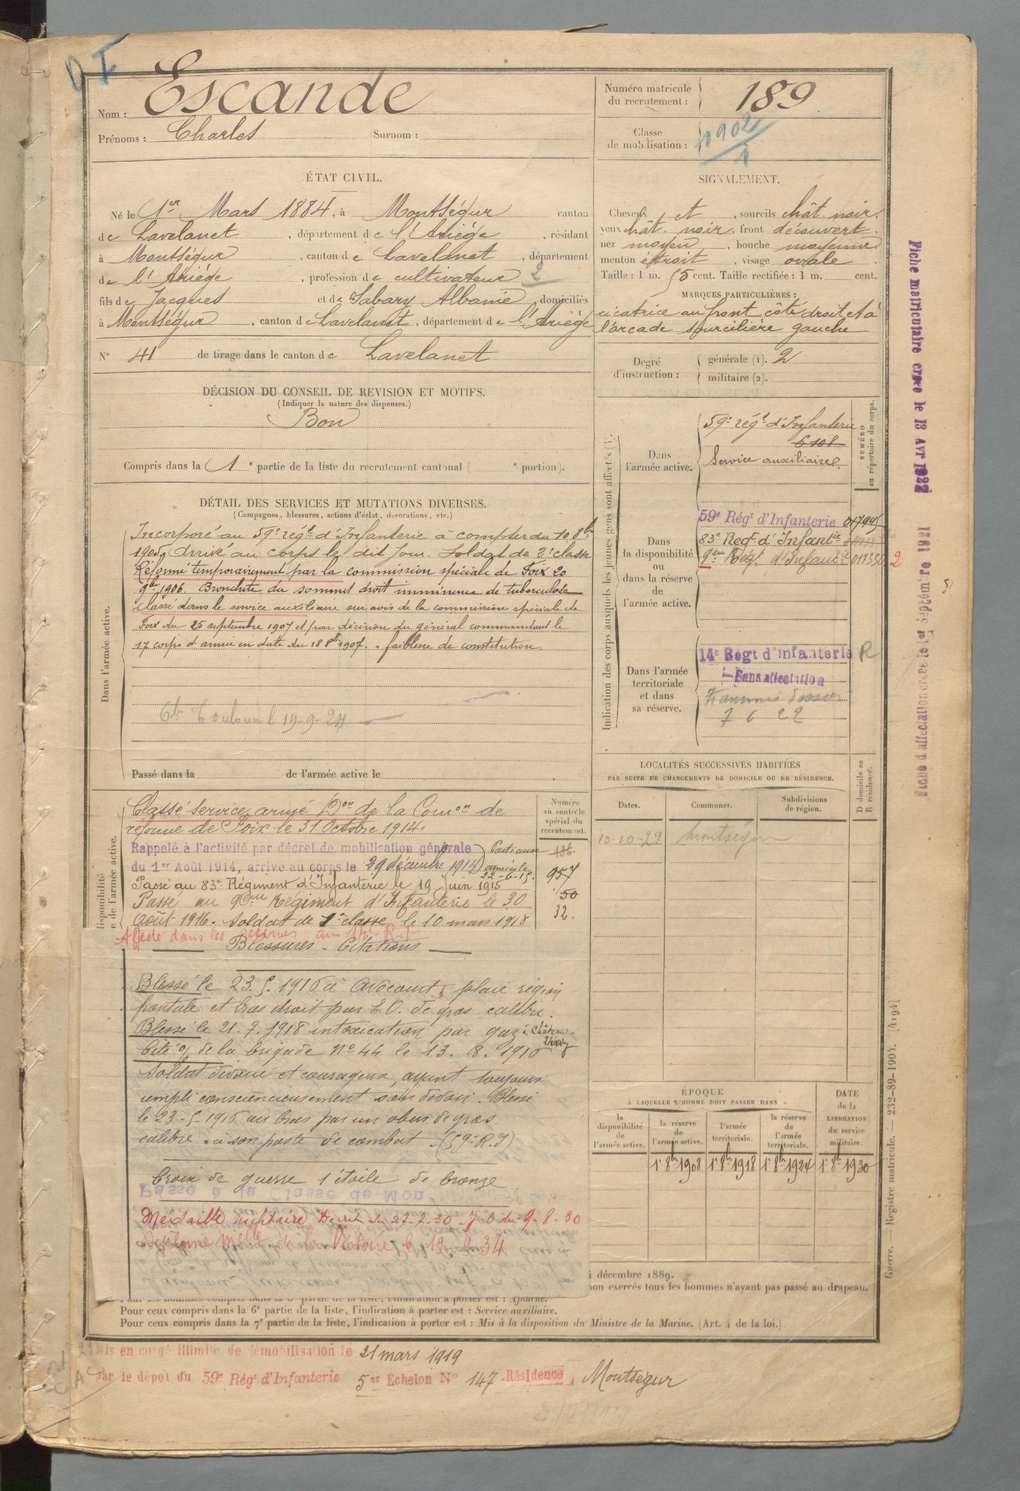 D I
Nom : Escande
Prénoms : Charles Surnom :
Numéro matricule
du recrutement : 189
Classe
de mobilisation : 1902
1
ÉTAT CIVIL.
Né le 1er Mars 1884, à Montségur canton
de Lavelanet, département de l'Ariège, résidant
à Montségur, canton de Lavelanet, département
de l'Ariège, profession de cultivateur 2
fils de Jacques et de Sabary Albanie, domiciliés
à Montségur, canton de Lavelanet, département de l'Ariège
N° 41 de tirage dans le canton de Lavelanet
SIGNALEMENT.
Cheveux et, sourcils chât noir.
yeux chât. noir, front découvert
nez moyen, bouche moyenne
menton étroit, visage ovale
Taille : 1 m. 55 cent. Taille rectifiée : 1 m. cent.
MARQUES PARTICULIÈRES :
cicatrice au front côté droit et à
l'arcade sourcilière gauche
Degré
d'instruction :
générale (1). 2
militaire (2).
DÉCISION DU CONSEIL DE REVISION ET MOTIFS.
(Indiquer la nature des dispenses.)
Bon
Compris dans la 1e partie de la liste du recrutement cantonal ( e portion).
DÉTAIL DES SERVICES ET MUTATIONS DIVERSES.
(Campagnes, blessures, actions d'éclat, décorations, etc.)
Dans l'armée active.
Incorporé au 59e régt d'Infanterie à compter du 10 8bre
1905, arrivé au corps le dit jour. Soldat de 2e classe
Réformé temporairement par la commission spéciale de Foix 20
9bre 1906. Bronchite du sommet droit imminence de tuberculose
Classé dans le service auxiliaire sur avis de la commission spéciale de
Foix du 25 septembre 1907 et par décision du général commandant le
17 corps d'armée en date du 18 8bre 1907. faiblesse de constitution.
Toulouse 19-9-24
Passé dans la de l'armée active le
Indication des corps auxquels les jeunes gens sont affectés
Dans
l'armée active.
59e régt d'Infanterie
6108
Service auxiliaire.
NUMÉRO
au répertoire du corps.
Dans
la disponibilité
ou
dans la réserve
de
l'armée active.
59e Régt d'Infanterie
83e Regt d'Infantie
9em Regt d'Infantie
2
Dans l'armée
territoriale
et dans
sa réserve.
14e Regt d'Infanterie R
Sans affectation
7622
LOCALITÉS SUCCESSIVES HABITÉES
PAR SUITE DE CHANGEMENTS DE DOMICILE OU DE RÉSIDENCE.
Dates. Communes. Subdivisions
de région.
D domicile ou
R résidence.
10-10-29 Montségur
disponibilité
de l'armée active.
Numéro
au contrôle
spécial du
recrutement.
Classé service armé Don de la Comon de
réforme de Foix le 31 Octobre 1914.
Rappelé à l'activité par décret de mobilisation générale
du 1er Août 1914, arrivé au corps le 29 décembre 1914
Parti aux
armées le
22-6-15.
Passé au 83e Régiment d'Infanterie le 19 Juin 1915
Passé au 9eme Régiment d'Infanterie le 30
Août 1916. Soldat de 1e classe le 10 mars 1918
957
50
32.
Affecté dans les réserves au 14e R.I.
Blessures - Citations
Blessé le 23.5.1916 à Avocourt, plaie région
frontale et bras droit par E.O. de gros calibre.
Blessé le 21.7.1918 intoxication par gaz à Château-
Thierry
Cité O/ de la brigade N° 44 le 13.8.1916
Soldat dévoué et courageux, ayant toujours
rempli consciencieusement son devoir. Blessé
le 23-5-1916 au bras par un obus de gros
calibre à son poste de combat. (59e R.I)
Croix de guerre 1 étoile de bronze
Médaille militaire
diplôme Méd. de la Victoire
ÉPOQUE
À LAQUELLE L'HOMME DOIT PASSER DANS
la
disponibilité
de
l'armée active.
la réserve
de
l'armée active.
l'armée
territoriale.
la réserve
de
l'armée
territoriale.
DATE
de la
LIBÉRATION
du service
militaire.
1er 8bre 1908 1er 8bre 1918 1er 8bre 1924 1er 8bre 1930
décembre 1889.
non exercés tous les hommes n'ayant pas passé au drapeau.
Pour ceux compris dans la 6e partie de la liste, l'indication à porter est : Service auxiliaire.
Pour ceux compris dans la 7e partie de la liste, l'indication à porter est : Mis à la disposition du Ministre de la Marine. (Art. 4 de la loi.)
Mis en congé illimité de démobilisation le 21 mars 1919
par le dépôt du 59e Régt d'Infanterie 5er Echelon N° 147 Résidence Montségur
Fiche matriculaire créée le 13 Avr 1932
Fiche d'affectation créée le 1er Septembre 1921
Guerre. — Registre matricule. — 232-89-1904. [4194]